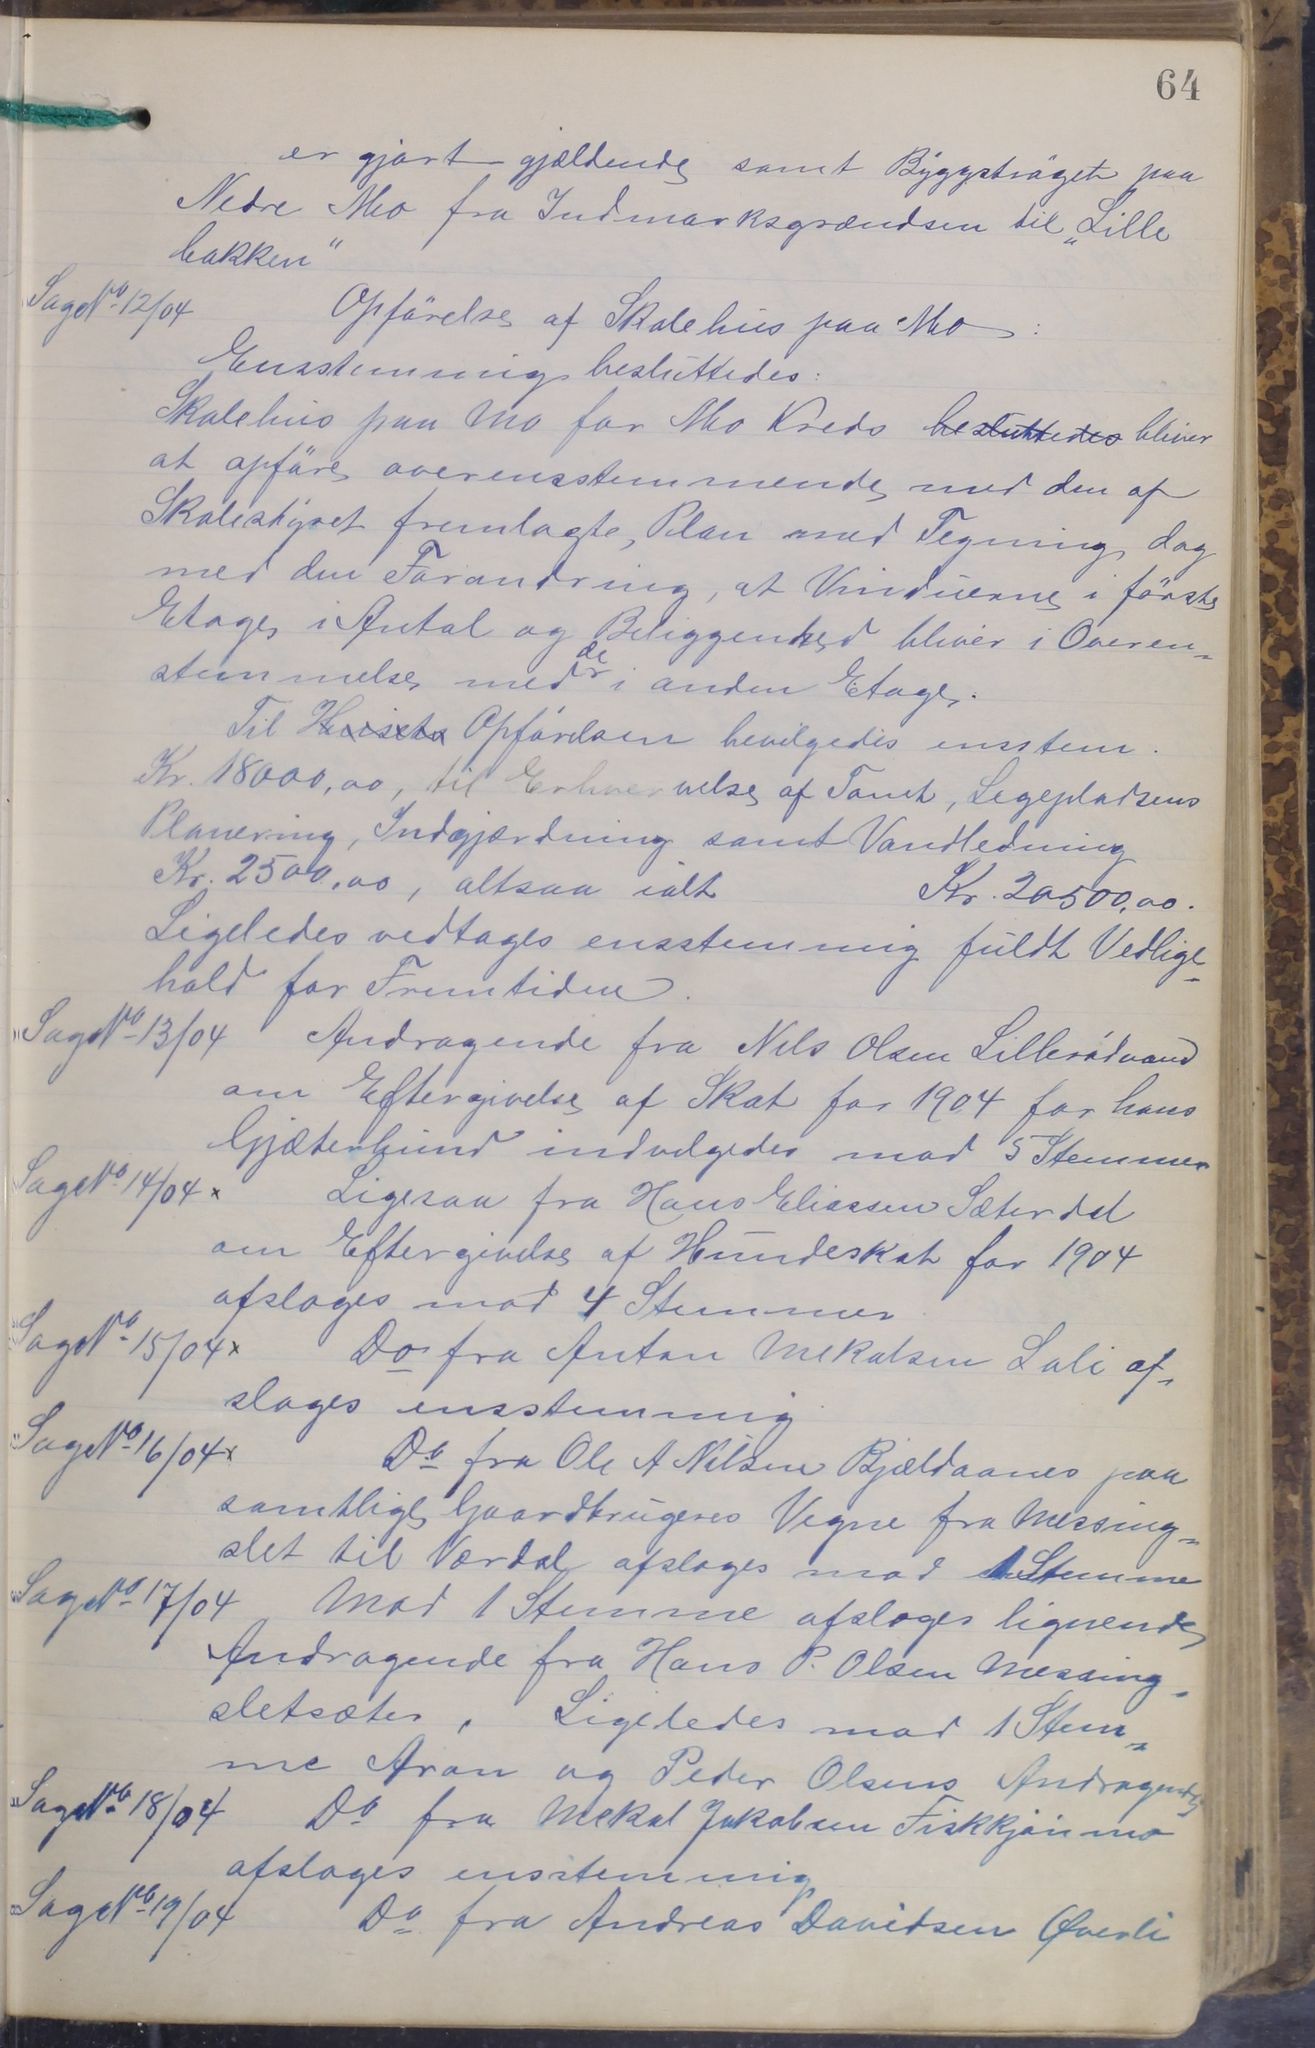 64
er gjort gjældende samt Byggstrøget paa
Nedre Mo fra Indmarksgrændsen til „Lille
bakken"
Sag No 12/04 Opførelse af Skolehus paa Mo:
Enstemmig besluttedes:
Skolehus paa Mo for Mo Kreds besluttedes bliver
at opføre overensstemmende med den af
Skolestyret fremlagte Plan med Tegning, dog
med den Forandring, at Vinduerne i første
Etage i Antal og Beliggenhed bliver i Overen-
stemmelse med de i anden Etage.
Til Huset Opførelsen bevilgedes enstem.
Kr. 18000,00, til Erhvervelse af Tomt, Legepladsens
Planering, Indgjærdning samt Vandledning
Kr. 2500,00, altsaa ialt Kr. 20500,00.
Ligeledes vedtages enstemmig fuldt Vedlige-
hold for Fremtiden.
Sag No 13/04 Andragende fra Nils Olsen Lillerødvand
om Eftergivelse af Skat for 1904 for hans
Gjæterhund indvilgedes mod 5 Stemmer
Sag No 14/04 x Ligesaa fra Hans Eliassen Sæterdal
om Eftergivelse af Hundeskat for 1904
afsloges mod 4 Stemmer
Sag No 15/04 x Do fra Anton Mekalsen Lali af-
sloges ensstemmig
Sag No 16/04 x Do fra Ole A Nilsen Bjældaanes paa
samtlige Gaardbrugeres Vegne fra Messing-
slet til Værdal afsloges mod 1 Stemme
Sag No 17/04 Mod 1 Stemme afsloges lignende
Andragende fra Hans P. Olsen Messing-
sletsæter, Ligeledes mod 1 Stem-
me Aron og Peder Olsens Andragende
Sag No 18/04 Do fra Mekal Jakobsen Fiskkjønmo
afsloges ensstemmig
Sag No 19/04 Do fra Andreas Davidsen Øverli